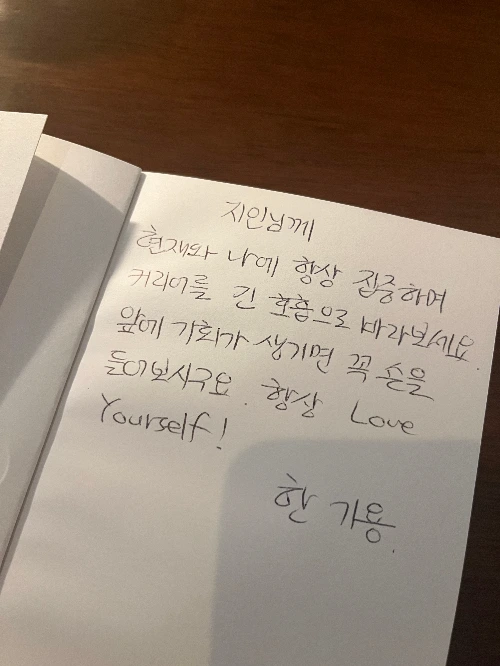 지인님께
현재와 나에 항상 집중하며
커리어를 긴 호흡으로 바라보세요.
앞에 기회가 생기면 꼭 손을
들어보시구요. 항상 Love
Yourself!
한 가용.